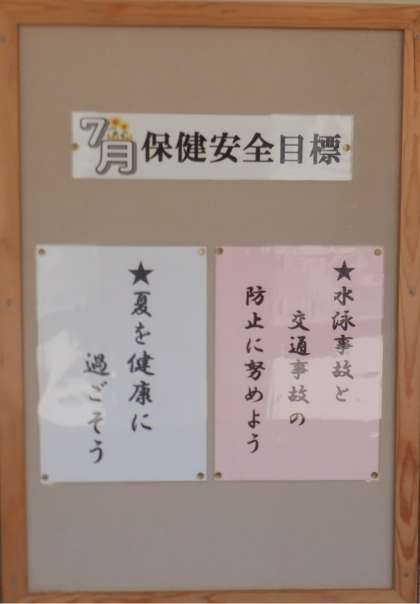 7月保健安全目標
★水泳事故と
交通事故の
防止に努めよう
★夏を健康に
過ごそう